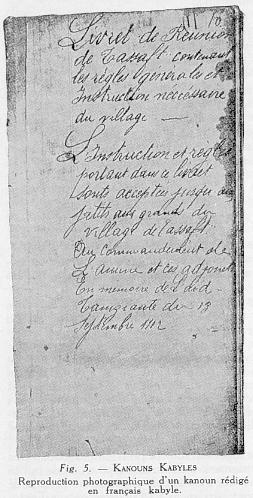 III 70
Livret de Réunion
de Tassaft contenant
les règles générales et
Instruction nécessaire
du village —
L'Instruction et règles
portant dans ce livret
sonts acceptée jusqu'au
petits aux grands du
village de Tassaft.
Au commandement de
L'amine et ces adjoints
En mémoire de
du 13
Septembre 1912
Fig. 5. — KANOUNS KABYLES
Reproduction photographique d'un kanoun rédigé
en français kabyle.